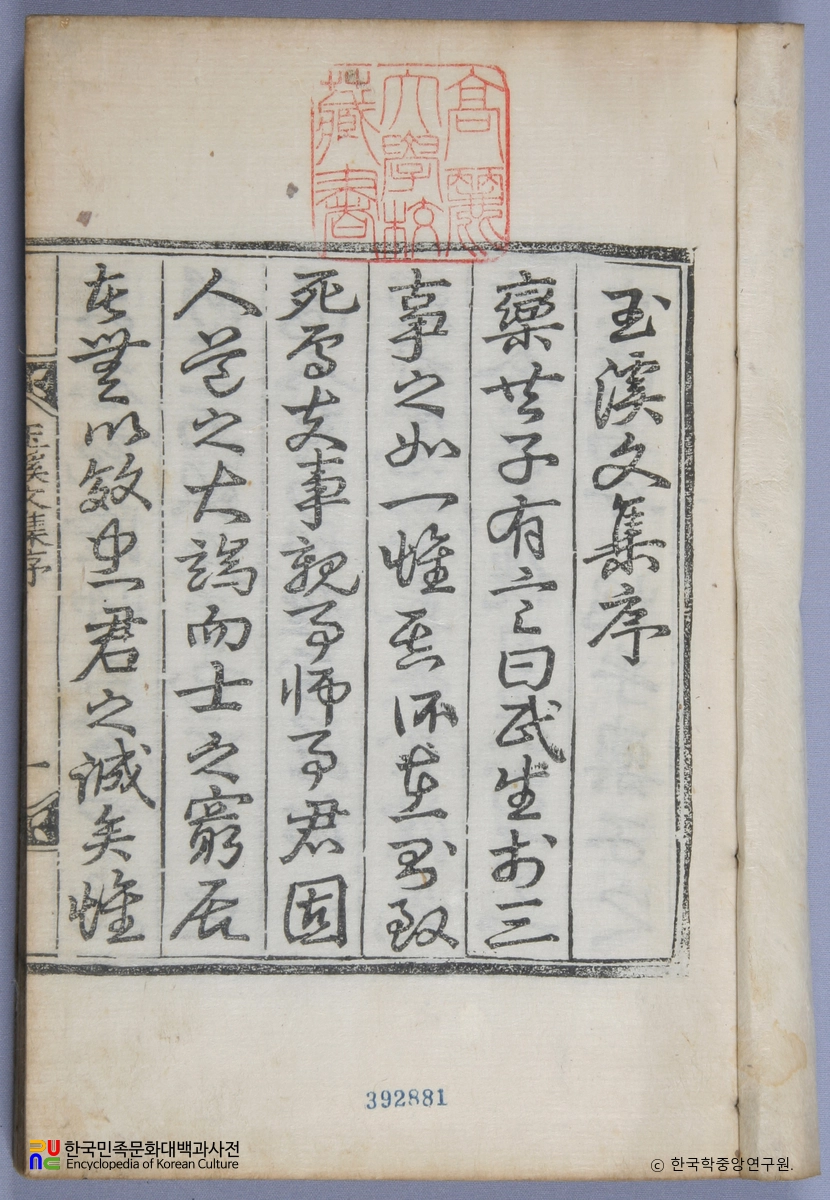 高麗
大學校
藏書
玉溪文集序
欒共子有言曰民生於三
事之如一惟其所在則致
死焉夫事親事師事君固
人道之大端而士之窮居
者無以效忠君之誠矣惟
玉溪文集序 一
392881
한국민족문화대백과사전
Encyclopedia of Korean Culture
© 한국학중앙연구원.